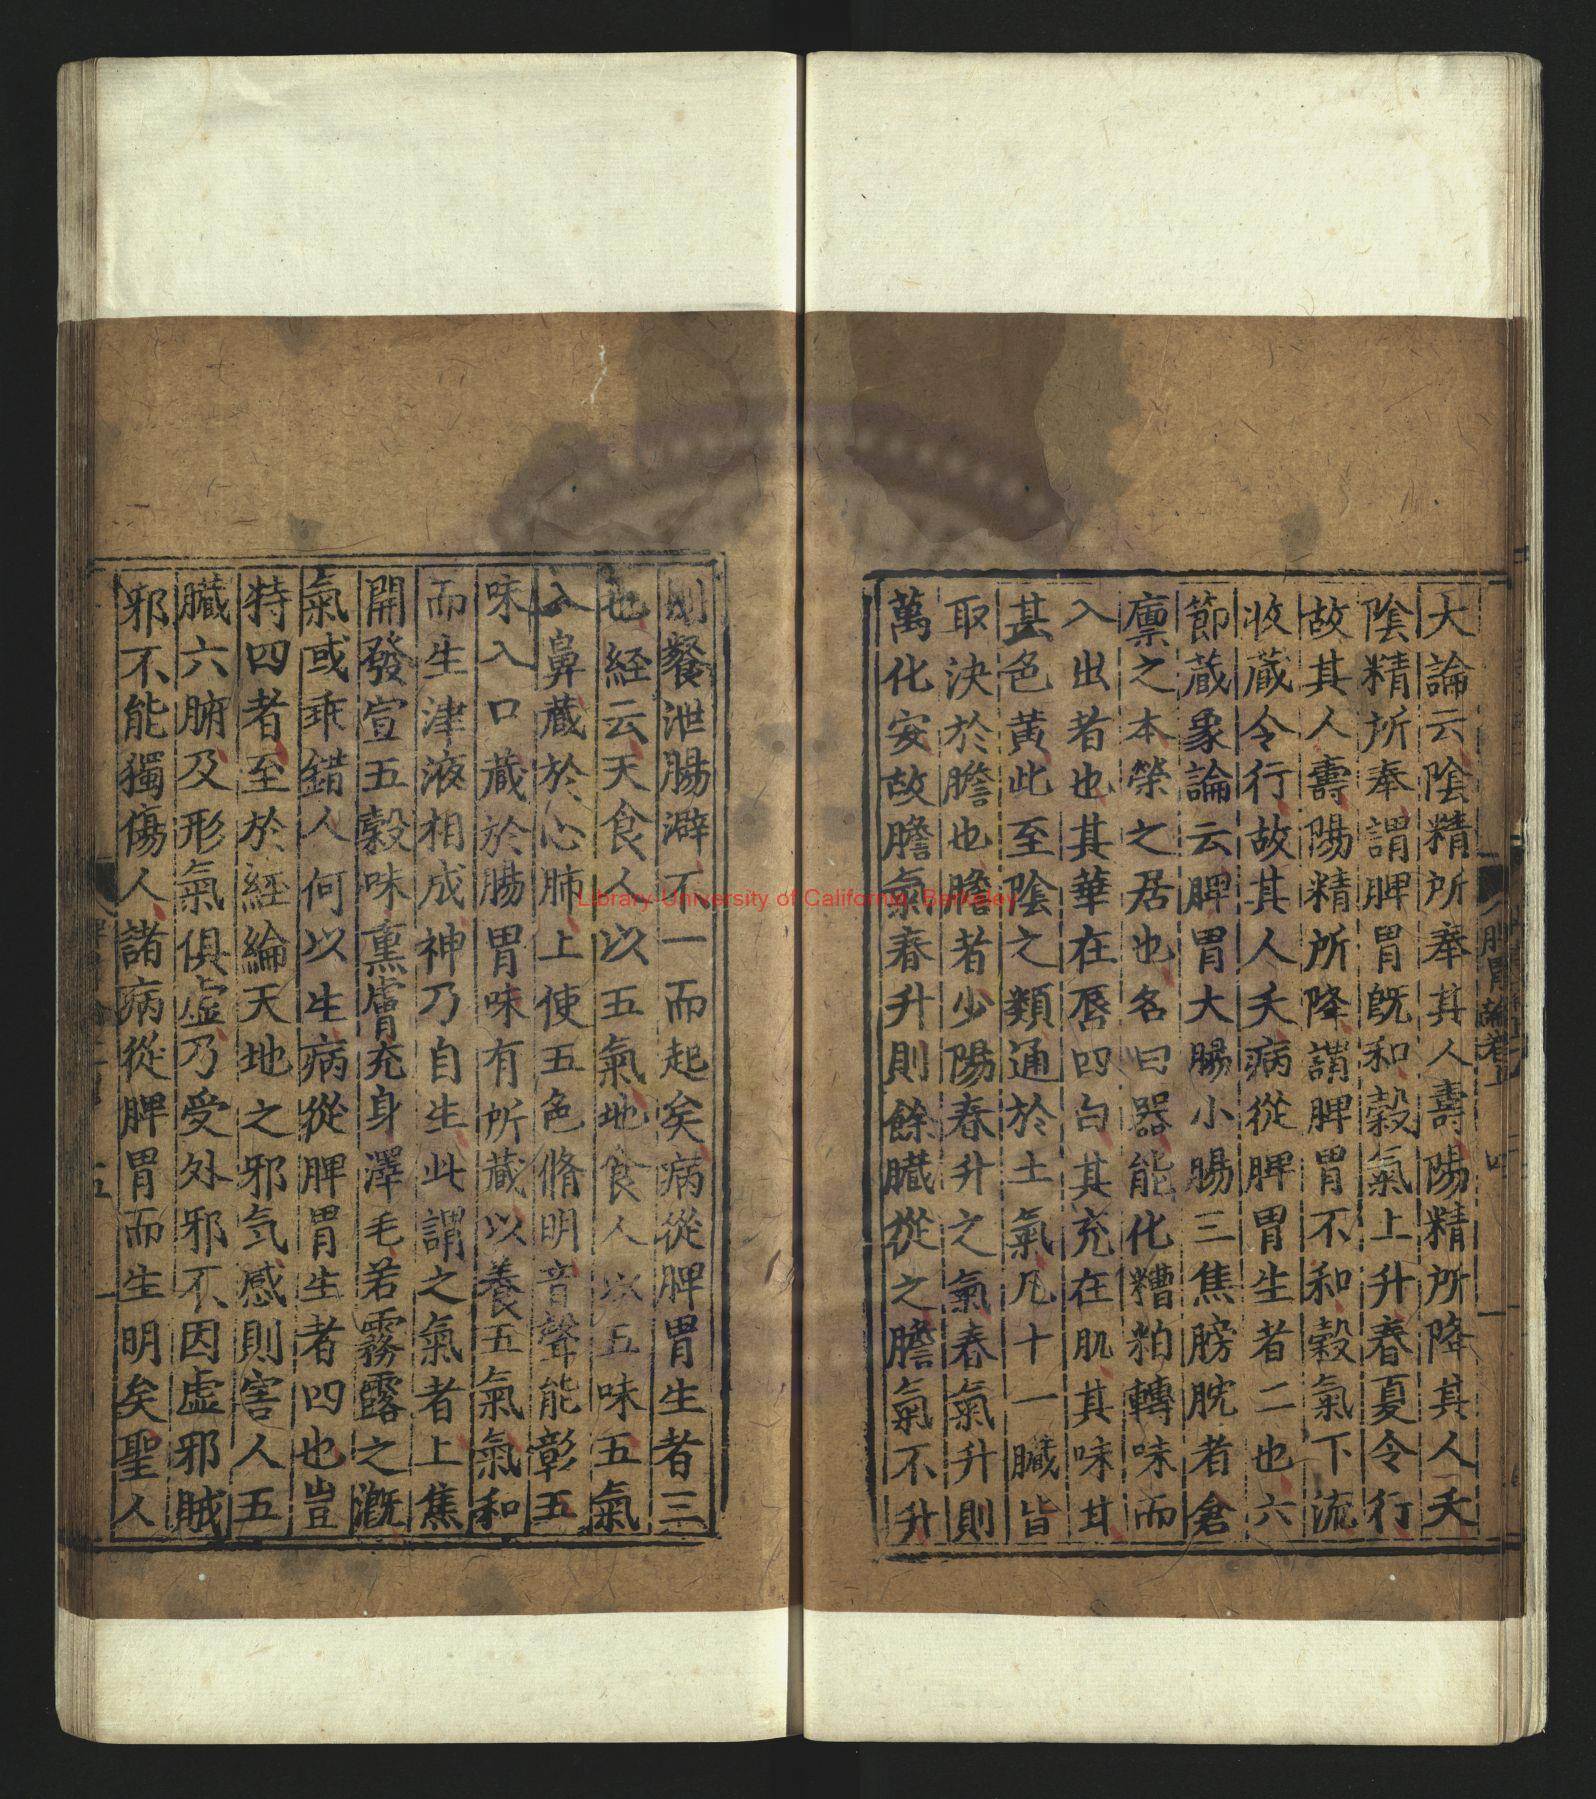 大論云陰精所奉其人壽陽精所降其人夭
陰精所奉謂脾胃既和穀氣上升春夏令行
故其人壽陽精所降謂脾胃不和穀氣下流
收蔵令行故其人夭病從脾胃生者二也六
節蔵象論云脾胃大膓小膓三焦膀胱者倉
廪之本榮之居也名曰器能化糟粕轉味而
入出者也其華在唇四白其充在肌其味甘
其色黄此至陰之類通於土氣凡十一臓皆
取決於膽也膽者少陽春升之氣春氣升則
萬化安故膽氣春升則餘臓從之膽氣不升
脾胃論卷上
四
則飱泄腸澼不一而起矣病從脾胃生者三
也經云天食人以五氣地食人以五味五氣
入鼻蔵於心肺上使五色脩明音聲能彰五
味入口蔵於腸胃味有所蔵以養五氣氣和
而生津液相成神乃自生此謂之氣者上焦
開發宣五穀味熏膚充身澤毛若霧露之溉
氣或乖錯人何以生病從脾胃生者四也豈
特四者至於経綸天地之邪気感則害人五
臓六腑及形氣俱虚乃受外邪不因虚邪賊
邪不能獨傷人諸病從脾胃而生明矣聖人
五
Library-University of California, Berkeley